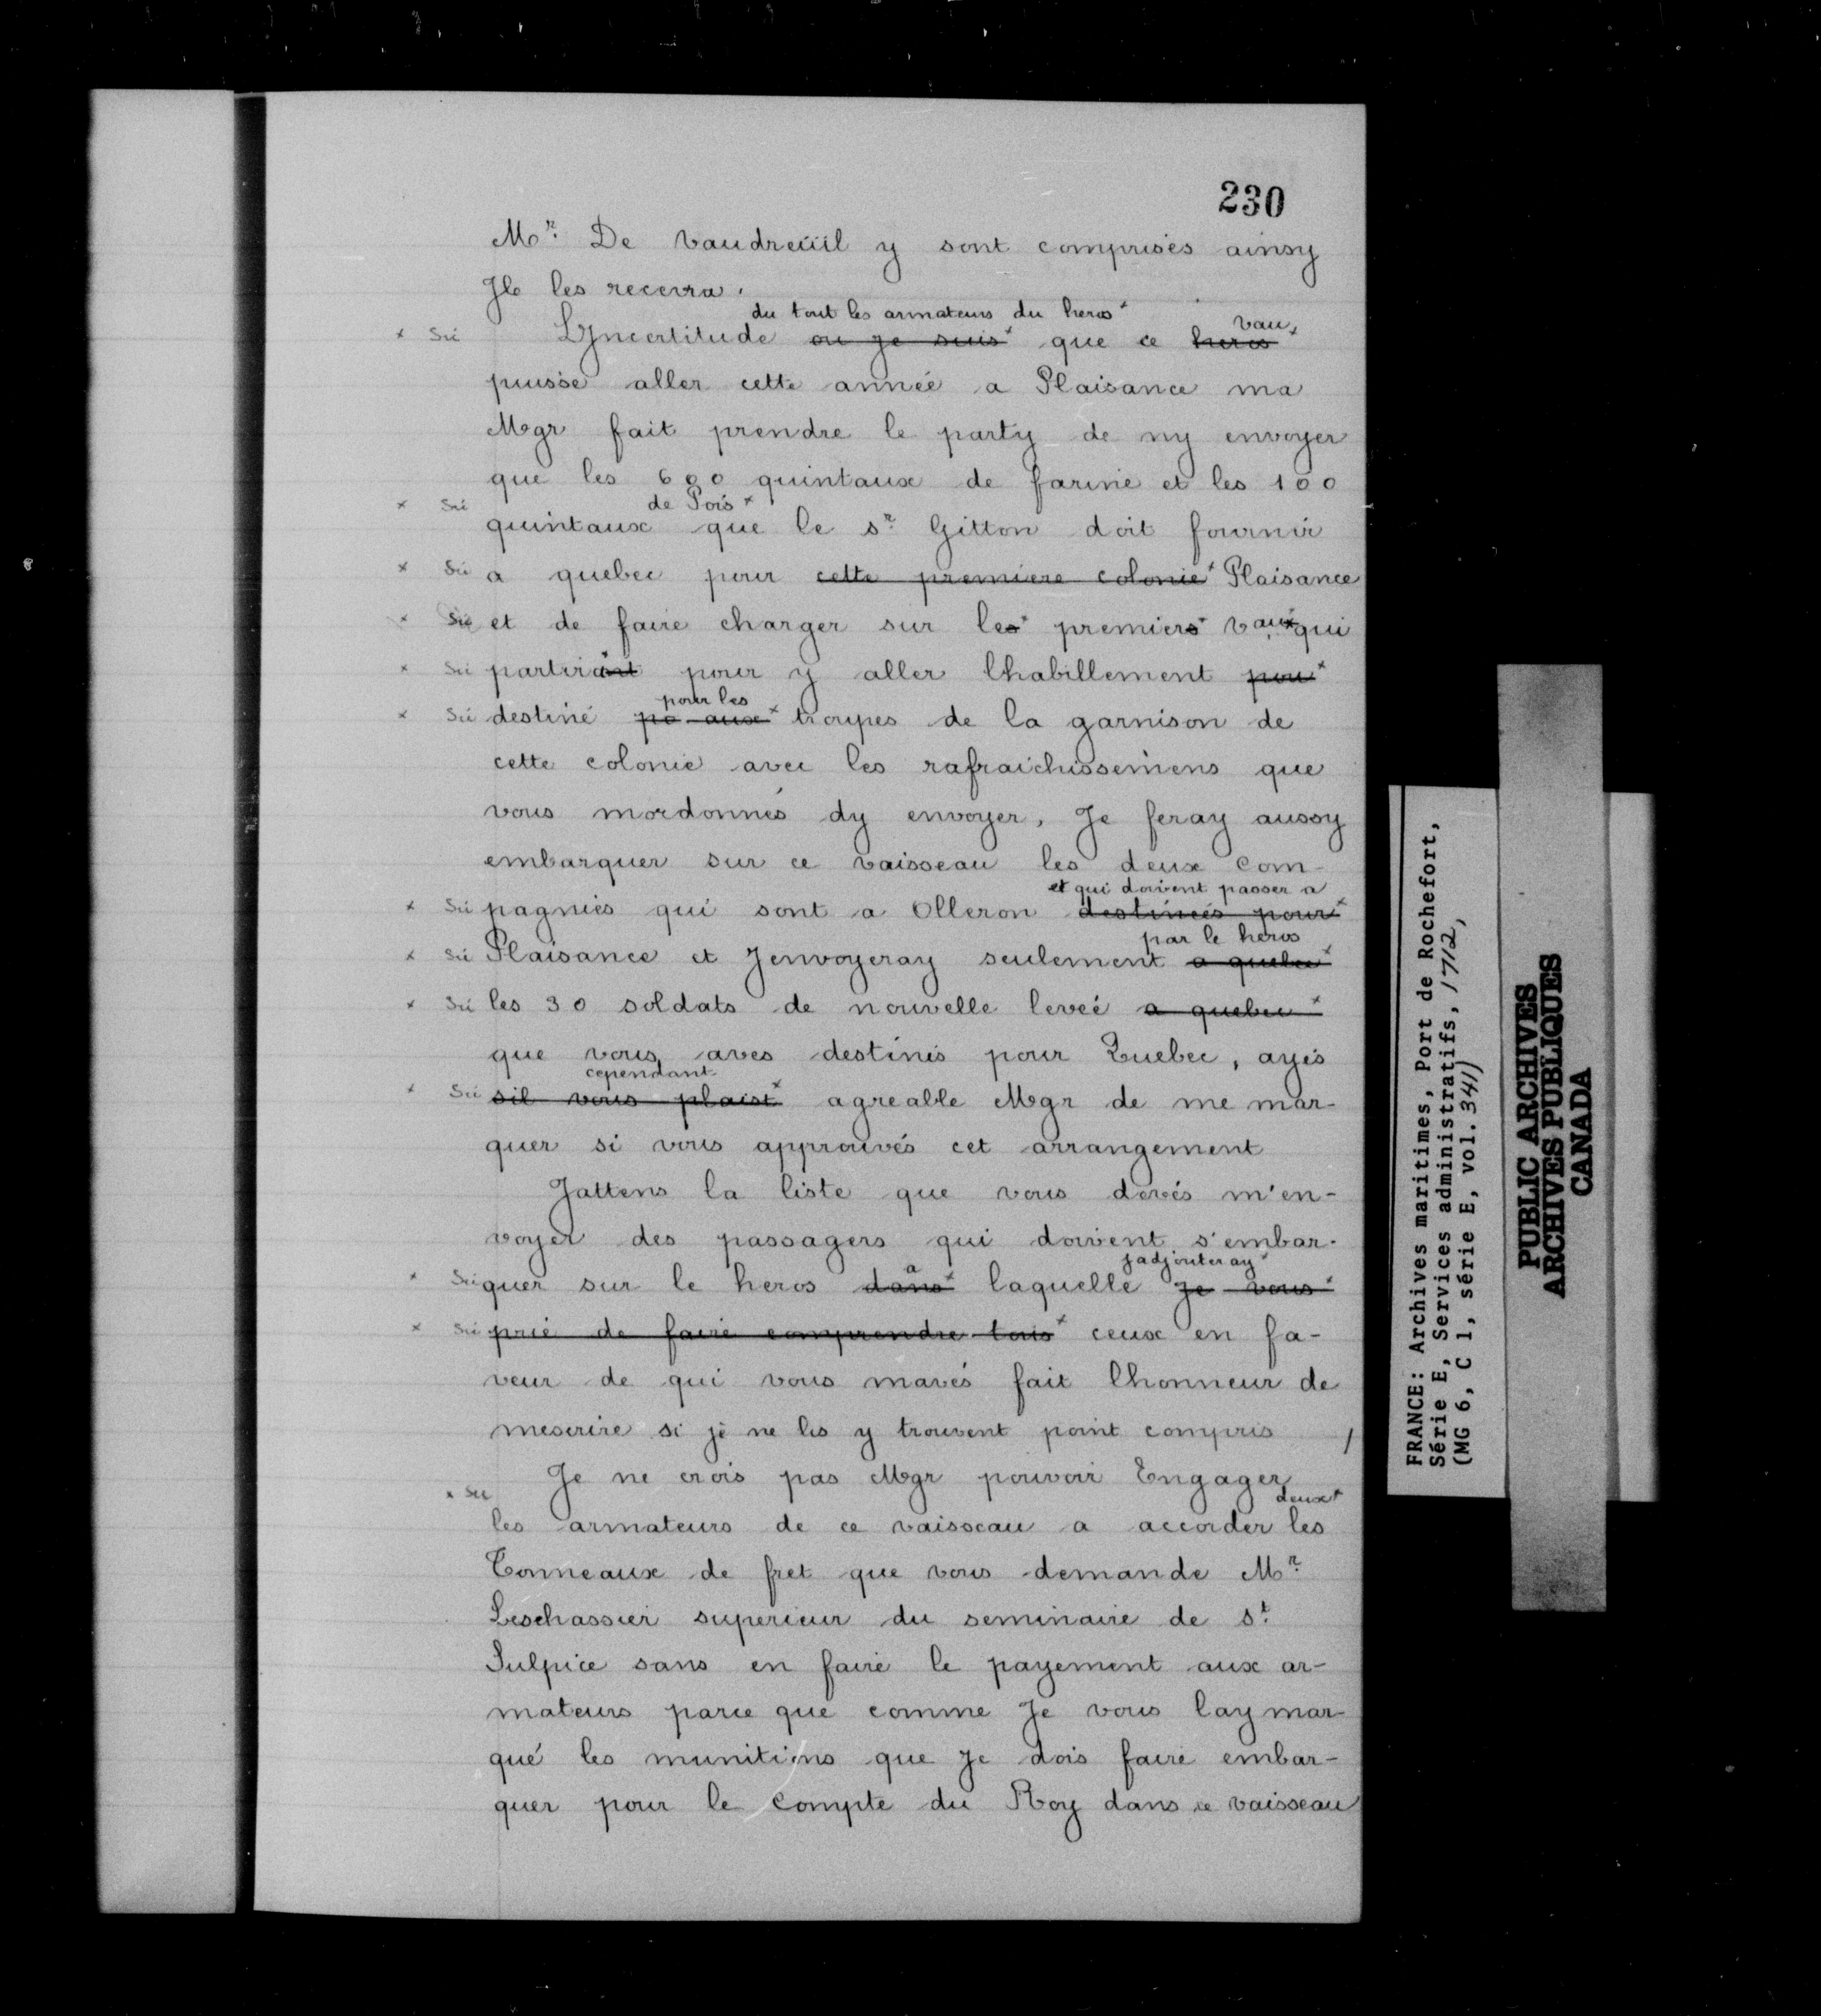 230
Mr. De Vaudreüil y sont comprisés ainsy
Jl les recevra.
du tout les armateurs du heros x
x Sii Lÿncertitude ou je suis x que ce heros x vau x
puisse aller cette année a Plaisance ma
Mgr fait prendre le party de ny envoyer
que les 600 quintaux de farine et les 100
x Sii de Pois x
quintaux que le sr. Gitton doit fournir
x Sii a quebec pour cette premiere colonie x Plaisance
x Sii et de faire charger sur les x premiers x vaux x qui
x Sii partiront pour y aller lhabillement pou x
pour les
x Sii destiné po aux x troupes de la garnison de
cette colonie avec les rafraichissemens que
vous mordonnés dy envoyer, Je feray aussy
embarquer sur ce vaisseau les deux com-
et qui doivent passer a
x Sii pagnies qui sont a Olleron destinées pour x
par le heros
x Sii Plaisance et Jenvoyeray seulement a quebec x
x Sii les 30 soldats de nouvelle leveé a quebec x
que vous aves destinés pour Quebec, ayés
cependant
x Sii sil vous plaist x agreable Mgr de me mar-
quer si vous approuvés cet arrangement
Jattens la liste que vous devés m'en-
voyer des passagers qui doivent s'embar-
a jadjouteray x
x Sii quer sur le heros dans x laquelle Je vous x
x Sii prie de faire comprendre tous x ceux en fa-
veur de qui vous mavés fait lhonneur de
mescrire si je ne les y trouvent point compris /
Je ne crois pas Mgr pouvoir Engager
x Sii deux x
les armateurs de ce vaisseau a accorder les
Tonneaux de fret que vous demande Mr.
Leschassier superieur du seminaire de st.
Sulpice sans en faire le payement aux ar-
mateurs parce que comme Je vous lay mar-
qué les munitions que Je dois faire embar-
quer pour le compte du Roy dans ce vaisseau
FRANCE: Archives maritimes, Port de Rochefort,
Série E, Services administratifs, 1712,
(MG 6, C 1, série E, vol. 341)
PUBLIC ARCHIVES
ARCHIVES PUBLIQUES
CANADA